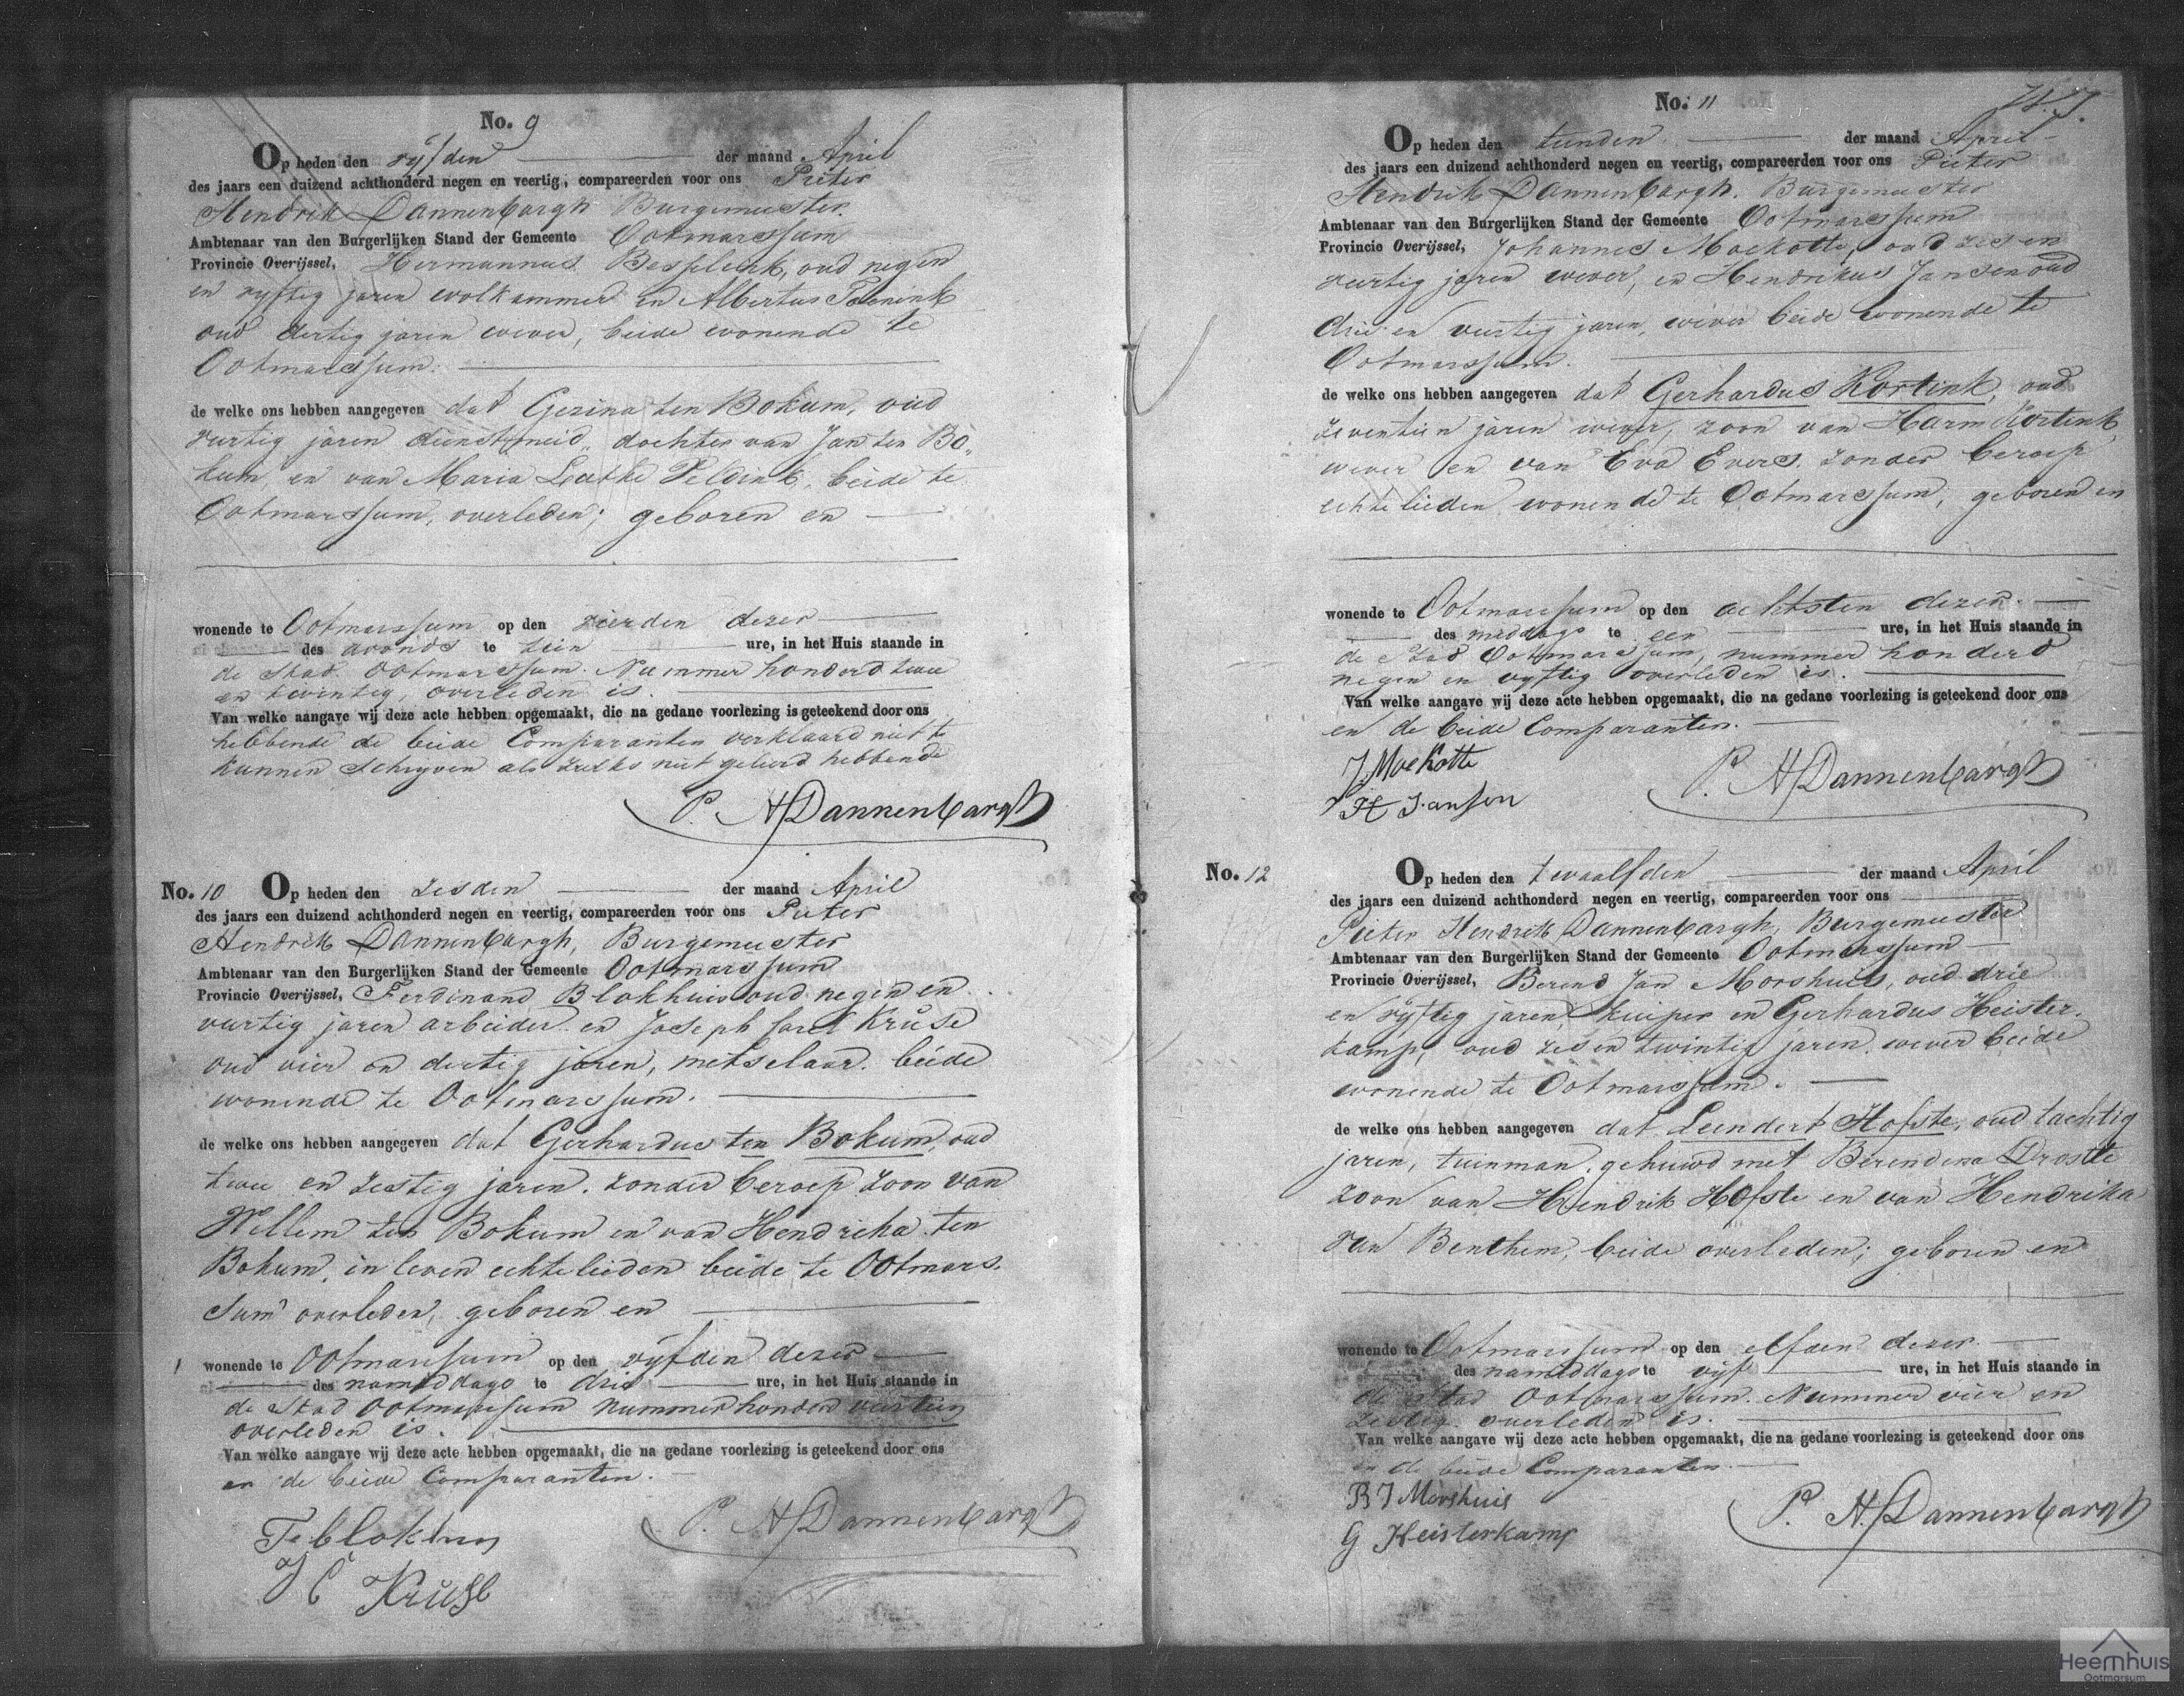 No. 9
Op heden den vijfden der maand April
des jaars een duizend achthonderd negen en veertig, compareerden voor ons Pieter
Hendrik Dannenbargh Burgemeester
Ambtenaar van den Burgerlijken Stand der Gemeente Ootmarssum
Provincie Overijssel, Hermannus oud negen
en vijftig jaren wolkammer en Albertus
oud dertig jaren wever, beide wonende te
Ootmarssum.
de welke ons hebben aangegeven dat Gezina ten Bokum, oud
veertig jaren dienstmeid, dochter van Jan ten Bo„
kum, en van Maria Veldink, beide te
Ootmarssum, overleden; geboren en
wonende te Ootmarssum op den vierden dezer
des avonds te tien ure, in het Huis staande in
de Stad Ootmarssum Nummer honderd twee
en twintig, overleden is.
Van welke aangave wij deze acte hebben opgemaakt, die na gedane voorlezing is geteekend door ons
hebbende de beide Comparanten verklaard niet te
kunnen schryven als zulks niet geleerd hebbende
P. H Dannenbargh
No. 10 Op heden den zesden der maand April
des jaars een duizend achthonderd negen en veertig, compareerden voor ons Pieter
Hendrik Dannenbargh, Burgemeester
Ambtenaar van den Burgerlijken Stand der Gemeente Ootmarssum
Provincie Overijssel, Ferdinand Blokhuis oud negen en
veertig jaren arbeider en Joseph Carel Kruse
oud vier en dertig jaren, metselaar. beide
wonende te Ootmarssum.
de welke ons hebben aangegeven dat Gerhardus ten Bokum, oud
twee en zestig jaren. zonder beroep zoon van
Willem ten Bokum en van Hendrika ten
Bokum, in leven echtelieden beide te Ootmars.
sum overleden, geboren en
wonende te Ootmarssum op den vijfden dezer
des namiddags te drie ure, in het Huis staande in
de Stad Ootmarssum nummer honderd veertien
overleden is.
Van welke aangave wij deze acte hebben opgemaakt, die na gedane voorlezing is geteekend door ons
en de beide Comparanten.
P. H Dannenbargh
J C Kruse
No. 11
Op heden den tienden der maand April
des jaars een duizend achthonderd negen en veertig, compareerden voor ons Pieter
Hendrik Dannenbargh. Burgemeester
Ambtenaar van den Burgerlijken Stand der Gemeente Ootmarssum
Provincie Overijssel, Johannes Moekotte, oud zes en
veertig jaren wever, en Hendrikus Jansen oud
drie en veertig jaren, wever beide wonende te
Ootmarssum.
de welke ons hebben aangegeven dat Gerhardus Kortink, oud
zeventien jaren wever, zoon van Harm Kortink,
wever en van Eva Evers. zonder beroep
echtelieden wonende te Ootmarssum; geboren en
wonende te Ootmarssum op den achtsten dezer.
des middags te een ure, in het Huis staande in
de Stad Ootmarssum, nummer honderd
negen en vijftig overleden is.
Van welke aangave wij deze acte hebben opgemaakt, die na gedane voorlezing is geteekend door ons
en de beide Comparanten.
J. Moekotte
P. H Dannenbargh
H Jansen
No. 12 Op heden den twaalfden der maand April
des jaars een duizend achthonderd negen en veertig, compareerden voor ons
Pieter Hendrik Dannenbargh, Burgemeester
Ambtenaar van den Burgerlijken Stand der Gemeente Ootmarssum
Provincie Overijssel, Berend Jan Morshuis, oud drie
en vijftig jaren, kuiper en Gerhardus Heister.
kamp, oud zes en twintig jaren. wever beide
wonende te Ootmarssum.
de welke ons hebben aangegeven dat Leendert Hofste, oud tachtig
jaren, tuinman. gehuwd met Berendina Droste
zoon van Hendrik Hofste en van Hendrika
van Benthem, beide overleden; geboren en
wonende te Ootmarssum op den elfden dezer.
des namiddags te vijf ure, in het Huis staande in
de Stad Ootmarssum. Nummer vier en
zestig overleden is.
Van welke aangave wij deze acte hebben opgemaakt, die na gedane voorlezing is geteekend door ons
en de beide Comparanten
B J Morshuis
P. H. Dannenbargh
G Heisterkamp
Heemhuis
Ootmarsum